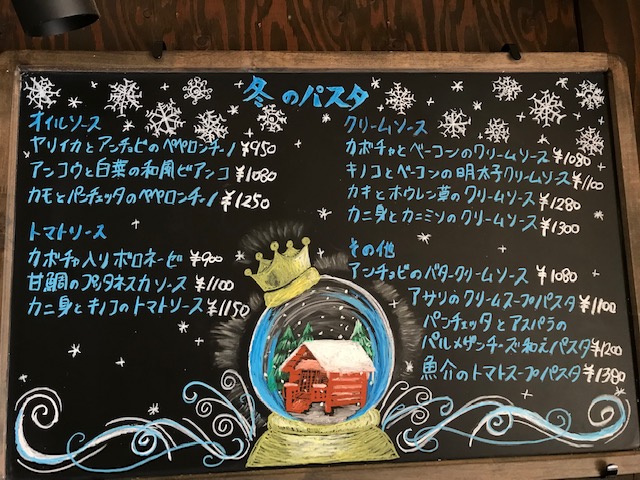 冬のパスタ
オイルソース
ヤリイカとアンチョビのペペロンチーノ ¥950
アンコウと白菜の和風ビアンコ ¥1080
カモとパンチェッタのペペロンチーノ ¥1250
トマトソース
カボチャ入りボロネーゼ ¥900
甘鯛のプッタネスカソース ¥1100
カニ身とキノコのトマトソース ¥1150
クリームソース
カボチャとベーコンのクリームソース ¥1080
キノコとベーコンの明太子クリームソース ¥1100
カキとホウレン草のクリームソース ¥1280
カニ身とカニミソのクリームソース ¥1300
その他
アンチョビのバタークリームソース ¥1080
アサリのクリームスープパスタ ¥1100
パンチェッタとアスパラの
パルメザンチーズ和えパスタ ¥1200
魚介のトマトスープパスタ ¥1380